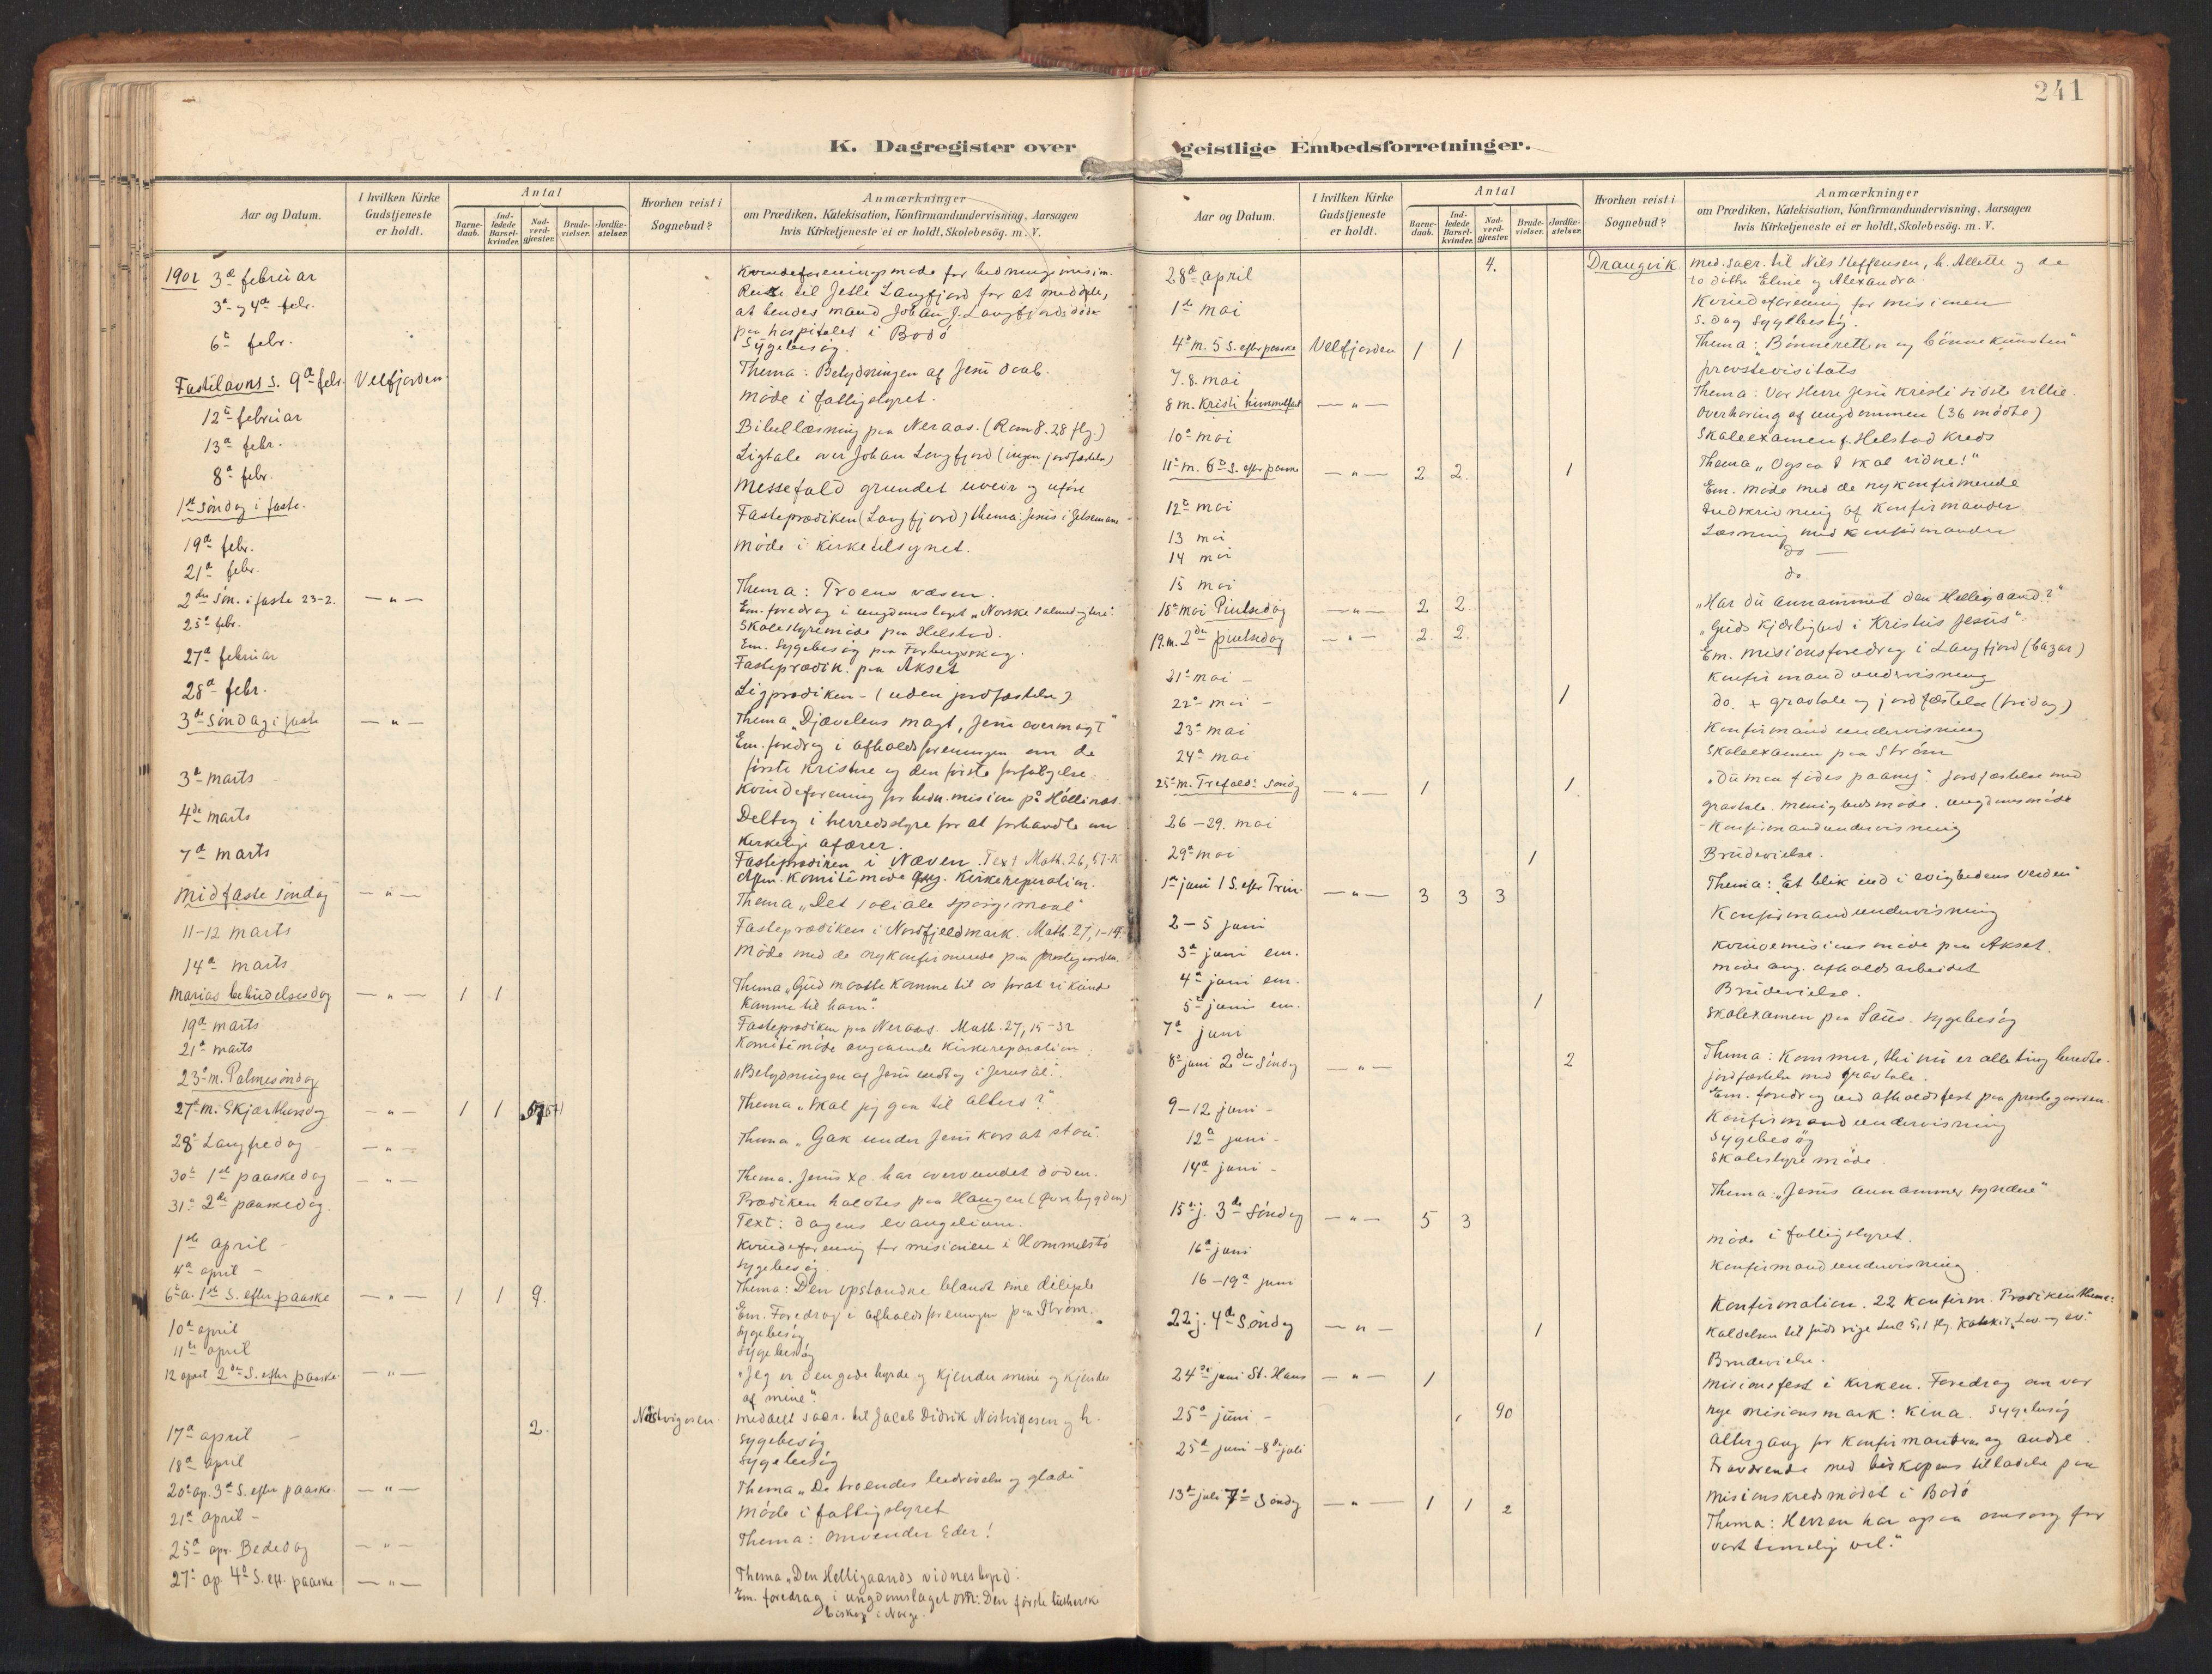 241
K. Dagregister over geistlige Embedsforretninger.
Aar og Datum.
I hvilken Kirke Gudstjeneste er holdt.
Antal
Barnedaab.
Indledede Barselkvinder.
Nadverdgjester.
Brudevielser.
Jordfæstelser.
Hvorhen reist i Sognebud?
Anmærkninger
om Prædiken, Katekisation, Konfirmandundervisning, Aarsagen
hvis Kirketjeneste ei er holdt, Skolebesög. m. V.
1902 3d februar Kvindeforeningsmöde for hedningemision.
3d og 4d febr. Reise til Jelle Langfjord for at meddele,
at hendes mand Johan J. Langfjords döde
6t febr. paa hospitalet i Bodö
Sygebesög.
Fastelavns S. 9d febr. Velfjorden Thema: Betydningen af Jesu daab.
12t februar Möde i fattigstyret.
13d febr. Bibellæsning paa Neraas. (Rom 8.28 flg.)
8d febr. Ligtale over Johan Langfjord (ingen jordfæstelse)
1st söndag i faste. Messefald grundet uveir og uföre
19d febr. Fasteprædiken (Langfjord) thema: Jesus i Getsemane
21d febr. Möde i kirketilsynet.
2den Sön. i faste 23-2. — " — Thema: Troens væsen.
Em. foredrag i ungdomslaget „Norske salmedigtere"
25d febr. Skolestyremöde paa Helstad.
27d februar Em. Sygebesög paa
Fasteprædik. paa Akset
28d febr. Ligprædiken - (uden jordfæstelse)
3die Söndag i faste — " — Thema „Djævelens magt, Jesu overmagt"
Em. foredrag i afholdsforeningen om de
förste kristne og den förste forfölgelse.
3d marts Kvindeforening for hedn. mision på Höllinas.
4de marts Deltog i herredsstyre for at forhandle om
kirkelige afærer.
7d marts Fasteprædiken i Næven. Text Math. 26, 57-75
Aften. Komitemöde ang. Kirkereparation.
Midfaste söndag — " — Thema „Det sociale spörgsmaal"
11-12 marts Fasteprædiken i Nordfjeldmark. Math. 27, 1-14
14d marts Möde med de nykonfirmerede paa prestegaarden.
Marias bebudelsesdag — " — 1 1 Thema „Gud maatte komme til os forat vi kunde
komme til ham."
19d marts Fasteprædiken paa Neraas. Math. 27, 15-32
21d marts Komitemöde angaaende kirkereparation.
23d m. Palmesöndag „Betydningen af Jesu indtog i Jerusal."
27d m. Skjærthorsdag — " — 1 1 Thema „Skal jeg gaa til alters?"
28d Langfredag — " — Thema „Gak under Jesu kors at staa".
30t 1st paaskedag — " — Thema. Jesus Xp. har overvundet döden.
31t 2den paaskedag. Prædiken holdtes paa Haugen (Övrebygden)
Text: dagens evangelium.
1ste april Kvindeforening for misionen i Hommelstö
4d april Sygebesög.
6t a. 1st S. efter paaske — " — 1 1 9. Thema: Den opstandne blandt sine disciple
Em. Foredrag i afholdsforeningen paa Ström.
10d april Sygebesög
11te april Sygebesög
12 april 2den S. efter paaske — " — „Jeg er den gode hyrde og kjender mine og kjendes
af mine".
17d april 2. Nistvigosen Meddelt sacr. til Jacob Didrik Nistvigosen og h.
Sygebesög
18d april Sygebesög
20d ap. 3d S. efter paaske — " — Thema „De troendes bedrövelse og glæde"
21d april Möde i fattigstyret
25d apr. Bededag — " — Thema: Omvender Eder!
27d ap. 4d S. eft. paaske — " — Thema „Den Helligaands vidnesbyrd".
Em. foredrag i ungdomslaget om: Den förste lutherske
biskop i Norge.
Aar og Datum.
I hvilken Kirke Gudstjeneste er holdt.
Antal
Barnedaab.
Indledede Barselkvinder.
Nadverdgjester.
Brudevielser.
Jordfæstelser.
Hvorhen reist i Sognebud?
Anmærkninger
om Prædiken, Katekisation, Konfirmandundervisning, Aarsagen
hvis Kirketjeneste ei er holdt, Skolebesög. m. V.
28d april 4. Draugvik Med. sacr. til Nils Steffensen, h. Allette og de
to döttre Eline og Alexandra
1ste mai Kvindeforening for misionen
S. dag Sygebesög.
4d m. 5 S. efter paaske Velfjorden 1 1 Thema: „Bönneretten og bönnekunsten"
7. 8. mai Provstevisitats
8 m. Kristi himmelfart — " — Thema: Vor Herre Jesu Kristi sidste villie.
Overhöring af ungdommen (36 mödte)
10d mai Skoleexamen f. Helstad Kreds
11t m. 6d S. efter paaske — " — 2 2. 1 Thema „Ogsaa I skal vidne!"
Em. möde med de nykonfirmerede
12t mai Indskrivning af Konfirmander
13 mai Læsning med konfirmander
14 mai do —
15 mai do.
18d mai Pintsedag — " — 2 2 „Har du annammet den Helligaand?"
19. m. 2den pintsedag — " — 2. 2. „Guds kjærlighed i Kristus Jesus".
Em. misionsforedrag i Langfjord (bazar)
21d mai - Konfirmandundervisning
22d mai - 1 do. + gravtale og jordfæstelse (fridag)
23d mai Konfirmandundervisning
24d mai Skoleexamen paa Ström
25d m. Trefold. Söndg — " — 1 1 „Du maa födes paany". Jordfæstelse med
gravtale. Menighedsmöde. Ungdomsmöde
26-29. mai Konfirmandundervisning
29d mai 1 Brudevielse.
1d juni 1 S. efter Trin. — " — 3 3 3 Thema: „Et blik ind i evighedens verden"
2-5 juni Konfirmandundervisning
3d juni em. Kvindemisionsmöde paa Akset.
4d juni em. Möde ang. afholdsarbeidet
5t juni em. 1 Brudevielse.
7d juni Skolexamen paa Saus. Sygebesög
8d juni 2den Söndg — " — 2 Thema: Kommer, thi nu er alle ting beredte.
Jordfæstelse med gravtale.
Em. foredrag ved afholdsfest paa prestegaarden.
9-12 juni - Konfirmandundervisning
12d juni - Sygebesög
14d juni - Skolestyremöde.
15d j. 3die Söndag — " — 5 3 Thema: „Jesus annammer syndere"
16d juni Möde i fattigstyret.
16-19d juni Konfirmandundervisning
22 j. 4de Söndag — " — 1 Konfirmation. 22 Konfirm. Prædikenthema:
Kaldelsen til Guds rige Luk 5,1 flg. „Lov og ev."
Brudevielse.
24de juni St. Hans — " — 1 Misionsfest i kirken. Foredrag om vor
nye misionsmark: Kina. Sygebesög
25d juni - 90 Altergang for Konfirmanterne og andre.
25d juni - 8d juli Fraværende med biskopens tilladelse paa
Misionskredsmödet i Bodö
13d juli 7d Söndg — " — 1 1 2 Thema: Herren har ogsaa omsorg for
vort timelig vel."